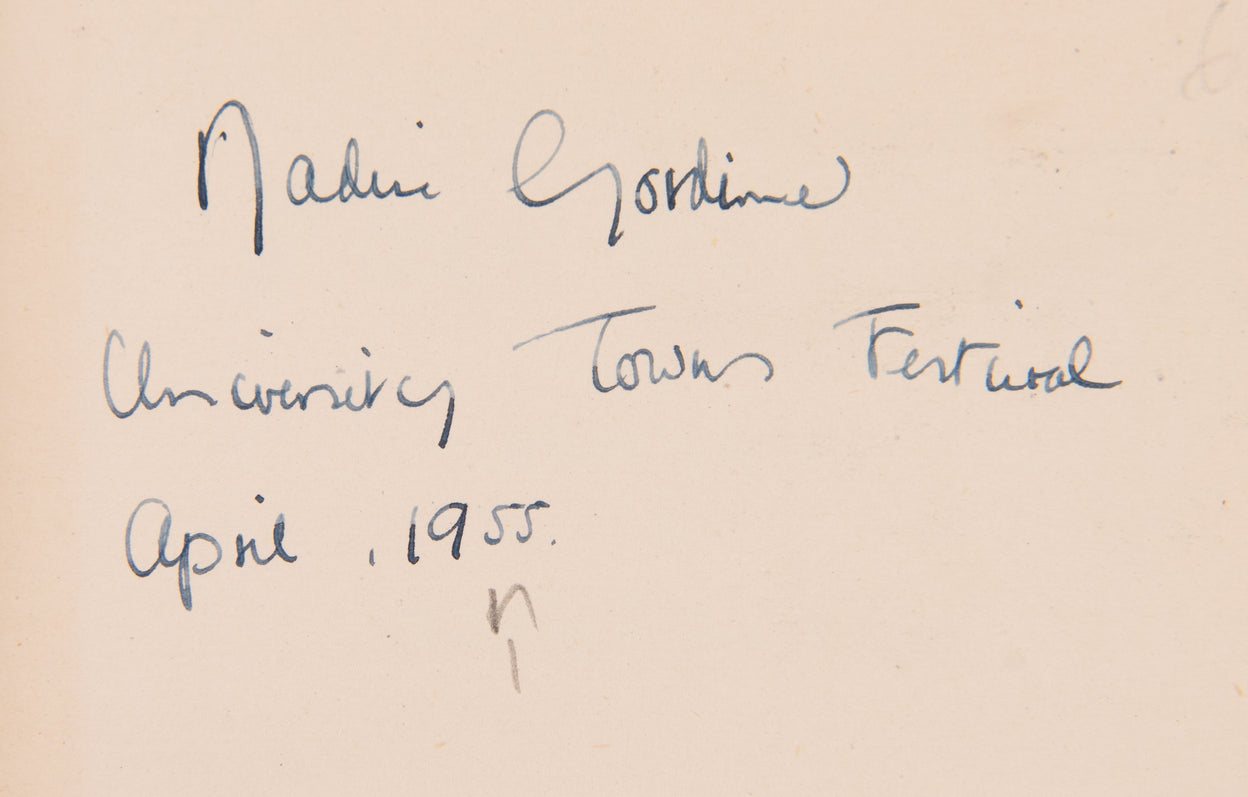 Nadine Gordimer
University Towns Festival
April, 1955.